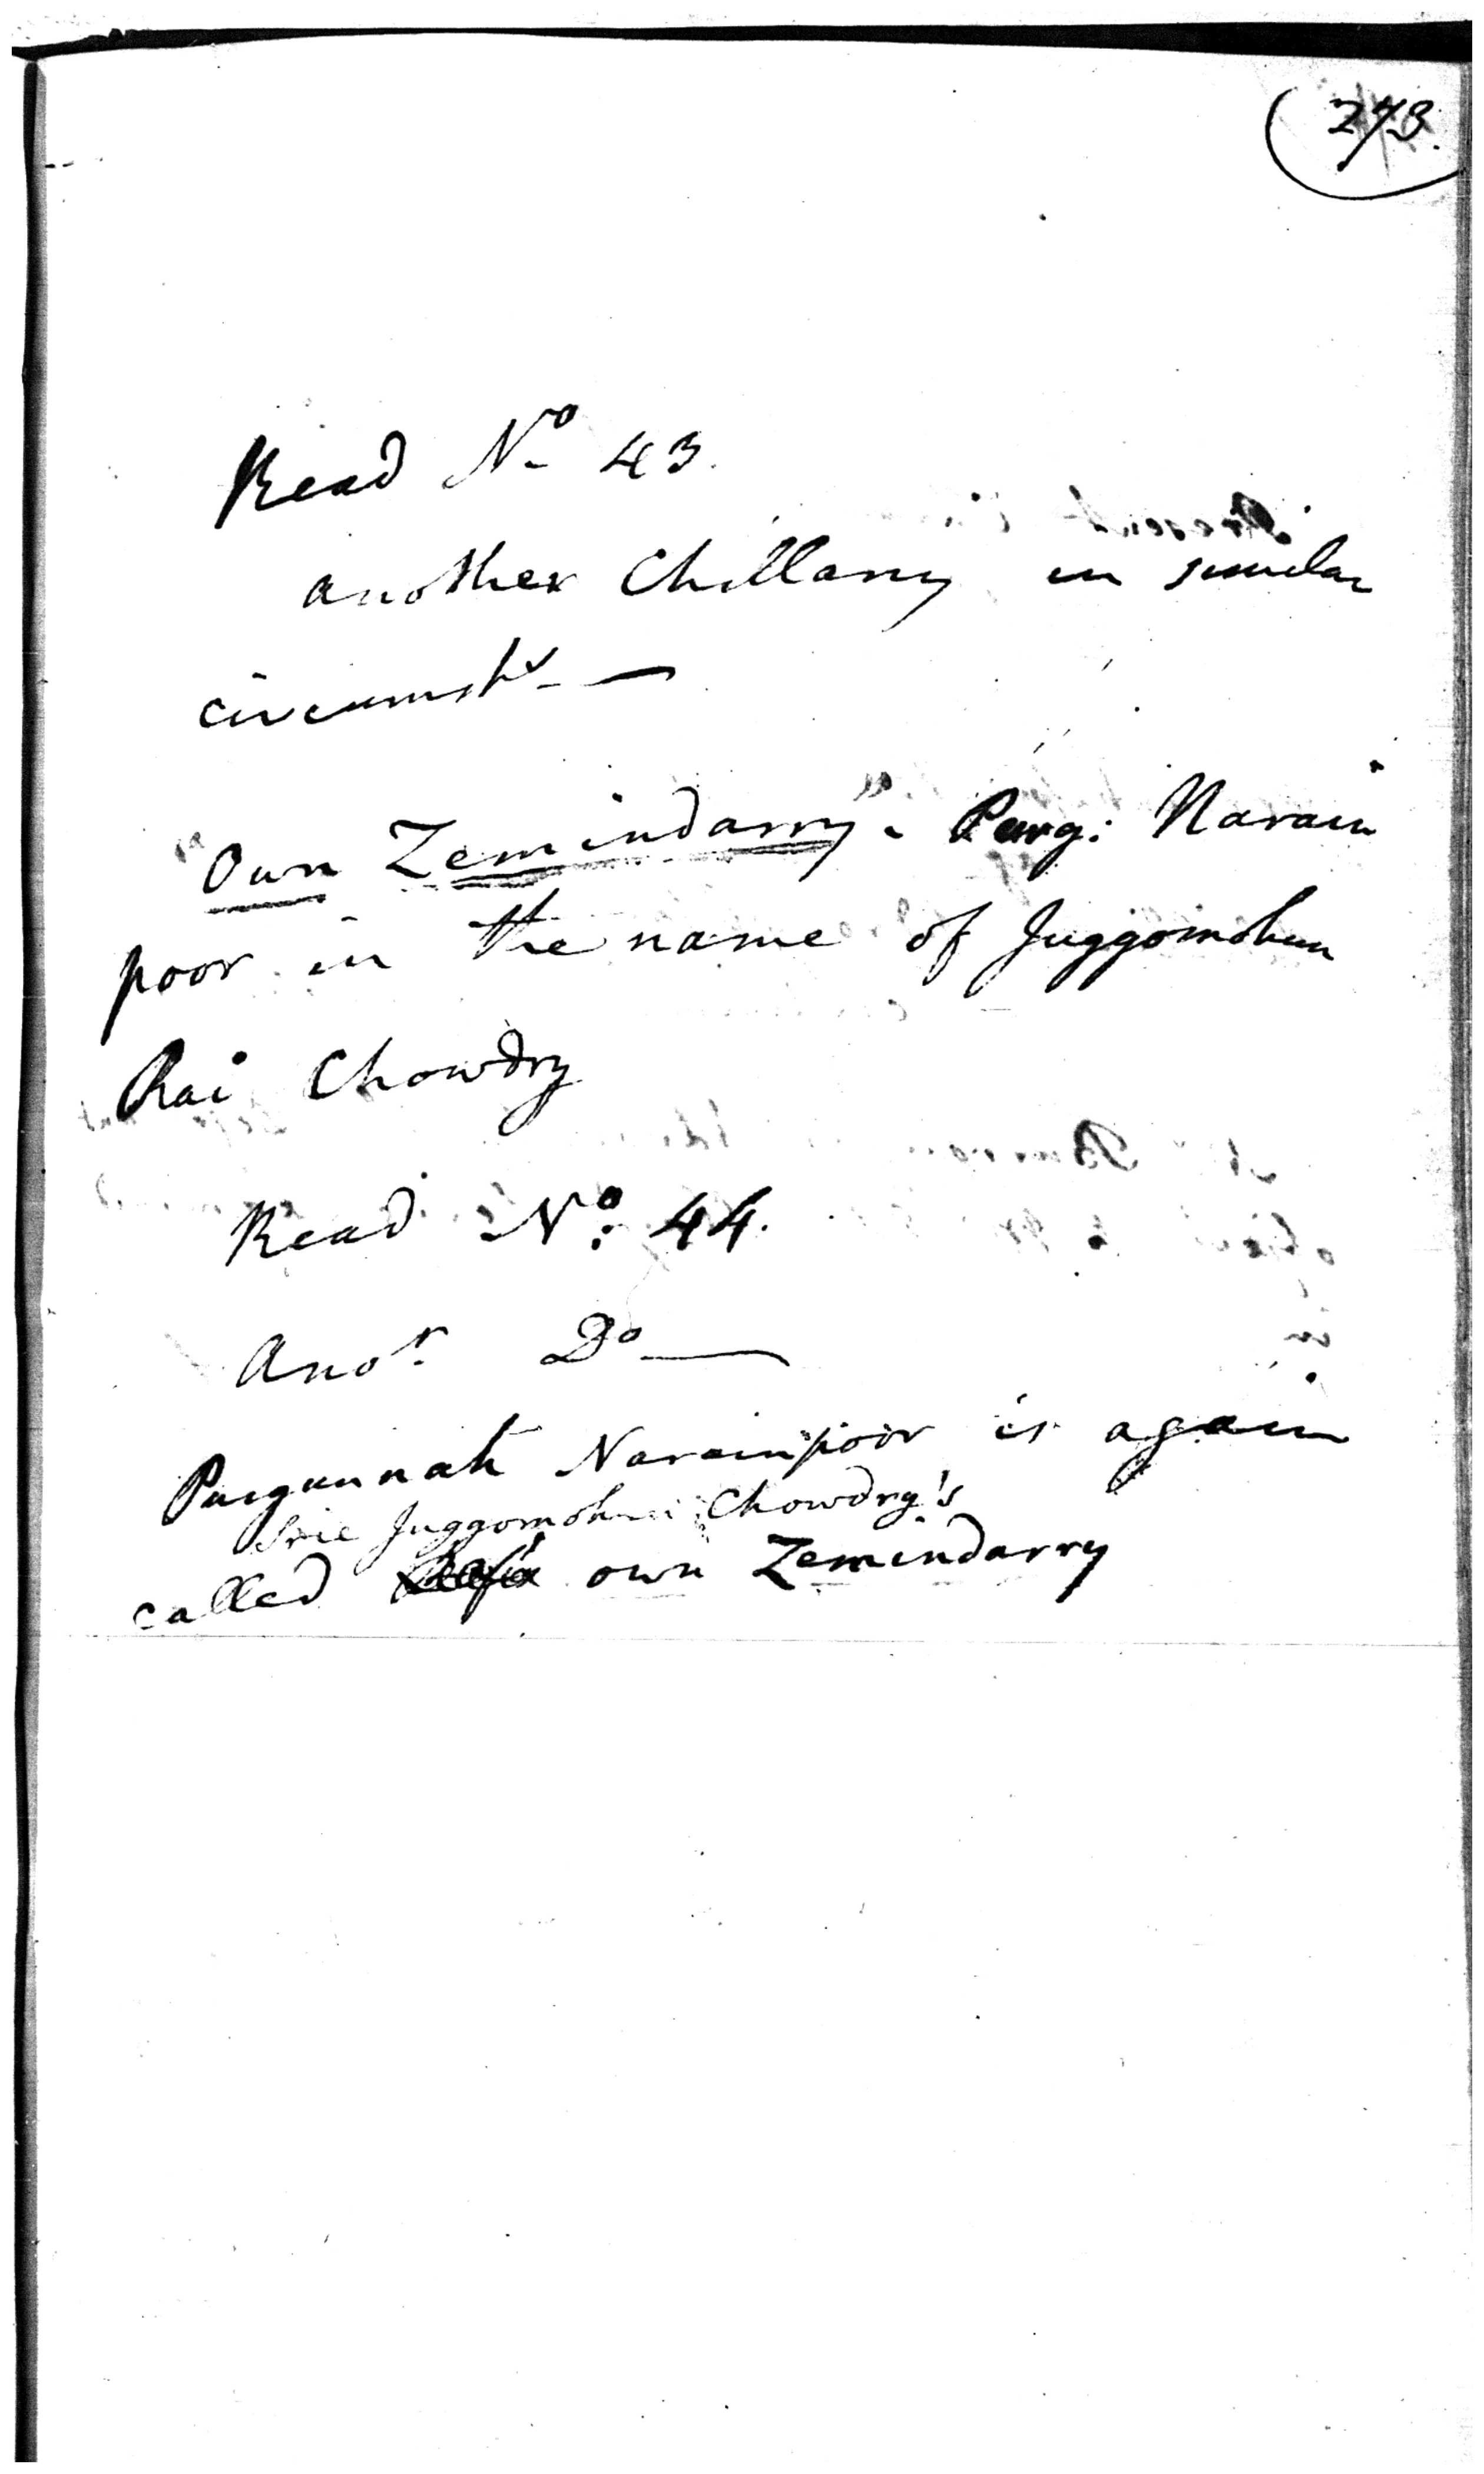 273.
Read No 43.
another Chillany in similar
circumsts —
"Own Zemindarry". Perg: Narain
poor in the name of Juggomohun
Rai Chowdry
Read No: 44.
Anor. Do —
Purgunnah Narainpoor is again
Srie Juggomohun Chowdry's
called own Zemindarry